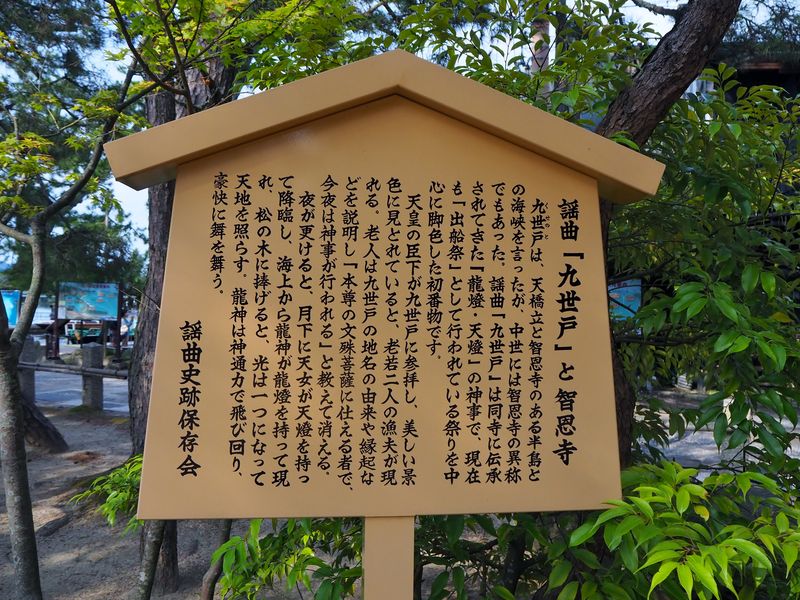 謡曲「九世戸」と智恩寺
くせのと
九世戸は、天橋立と智恩寺のある半島と
の海峡を言ったが、中世には智恩寺の異称
でもあった。謡曲「九世戸」は同寺に伝承
されてきた『龍燈・天燈』の神事で、現在
も「出船祭」として行われている祭りを中
心に脚色した初番物です。
天皇の臣下が九世戸に参拝し、美しい景
色に見とれていると、老若二人の漁夫が現
れる。老人は九世戸の地名の由来や縁起な
どを説明し「本尊の文殊菩薩に仕える者で、
今夜は神事が行われる」と教えて消える。
夜が更けると、月下に天女が天燈を持っ
て降臨し、海上から龍神が龍燈を持って現
れ、松の木に捧げると、光は一つになって
天地を照らす。龍神は神通力で飛び回り、
豪快に舞を舞う。
謡曲史跡保存会